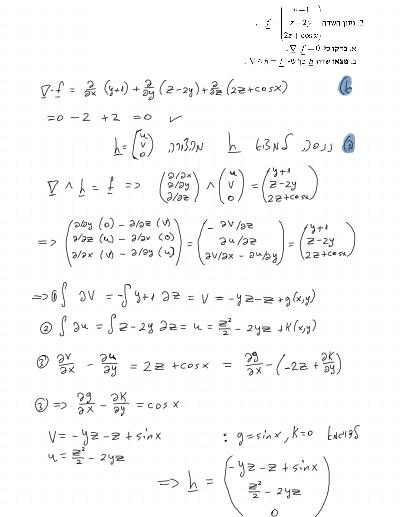 נתון השדה f = ( y+1 z-2y 2z+cosx )
א. בדקו כי ∇·f = 0
ב. מצאו שדה h כך ש- ∇∧h = f
∇·f = ∂/∂x (y+1) + ∂/∂y (z-2y) + ∂/∂z (2z+cosx)
= 0 - 2 + 2 = 0 ✓
ננסה למצוא h מהצורה h = ( u v 0 )
∇∧h = f => ( ∂/∂x ∂/∂y ∂/∂z ) ∧ ( u v 0 ) = ( y+1 z-2y 2z+cosx )
=> ( ∂/∂y (0) - ∂/∂z (v) ∂/∂z (u) - ∂/∂x (0) ∂/∂x (v) - ∂/∂y (u) ) = ( -∂v/∂z ∂u/∂z ∂v/∂x - ∂u/∂y ) = ( y+1 z-2y 2z+cosx )
=> ① ∫ ∂v = -∫ y+1 ∂z = v = -yz-z+g(x,y)
② ∫ ∂u = ∫ z-2y ∂z = u = z²/2 - 2yz + k(x,y)
③ ∂v/∂x - ∂u/∂y = 2z + cosx = ∂g/∂x - (-2z + ∂k/∂y)
③ => ∂g/∂x - ∂k/∂y = cosx
לדוגמא g = sinx, k=0 :
v = -yz - z + sinx
u = z²/2 - 2yz
=> h = ( -yz - z + sinx z²/2 - 2yz 0 )